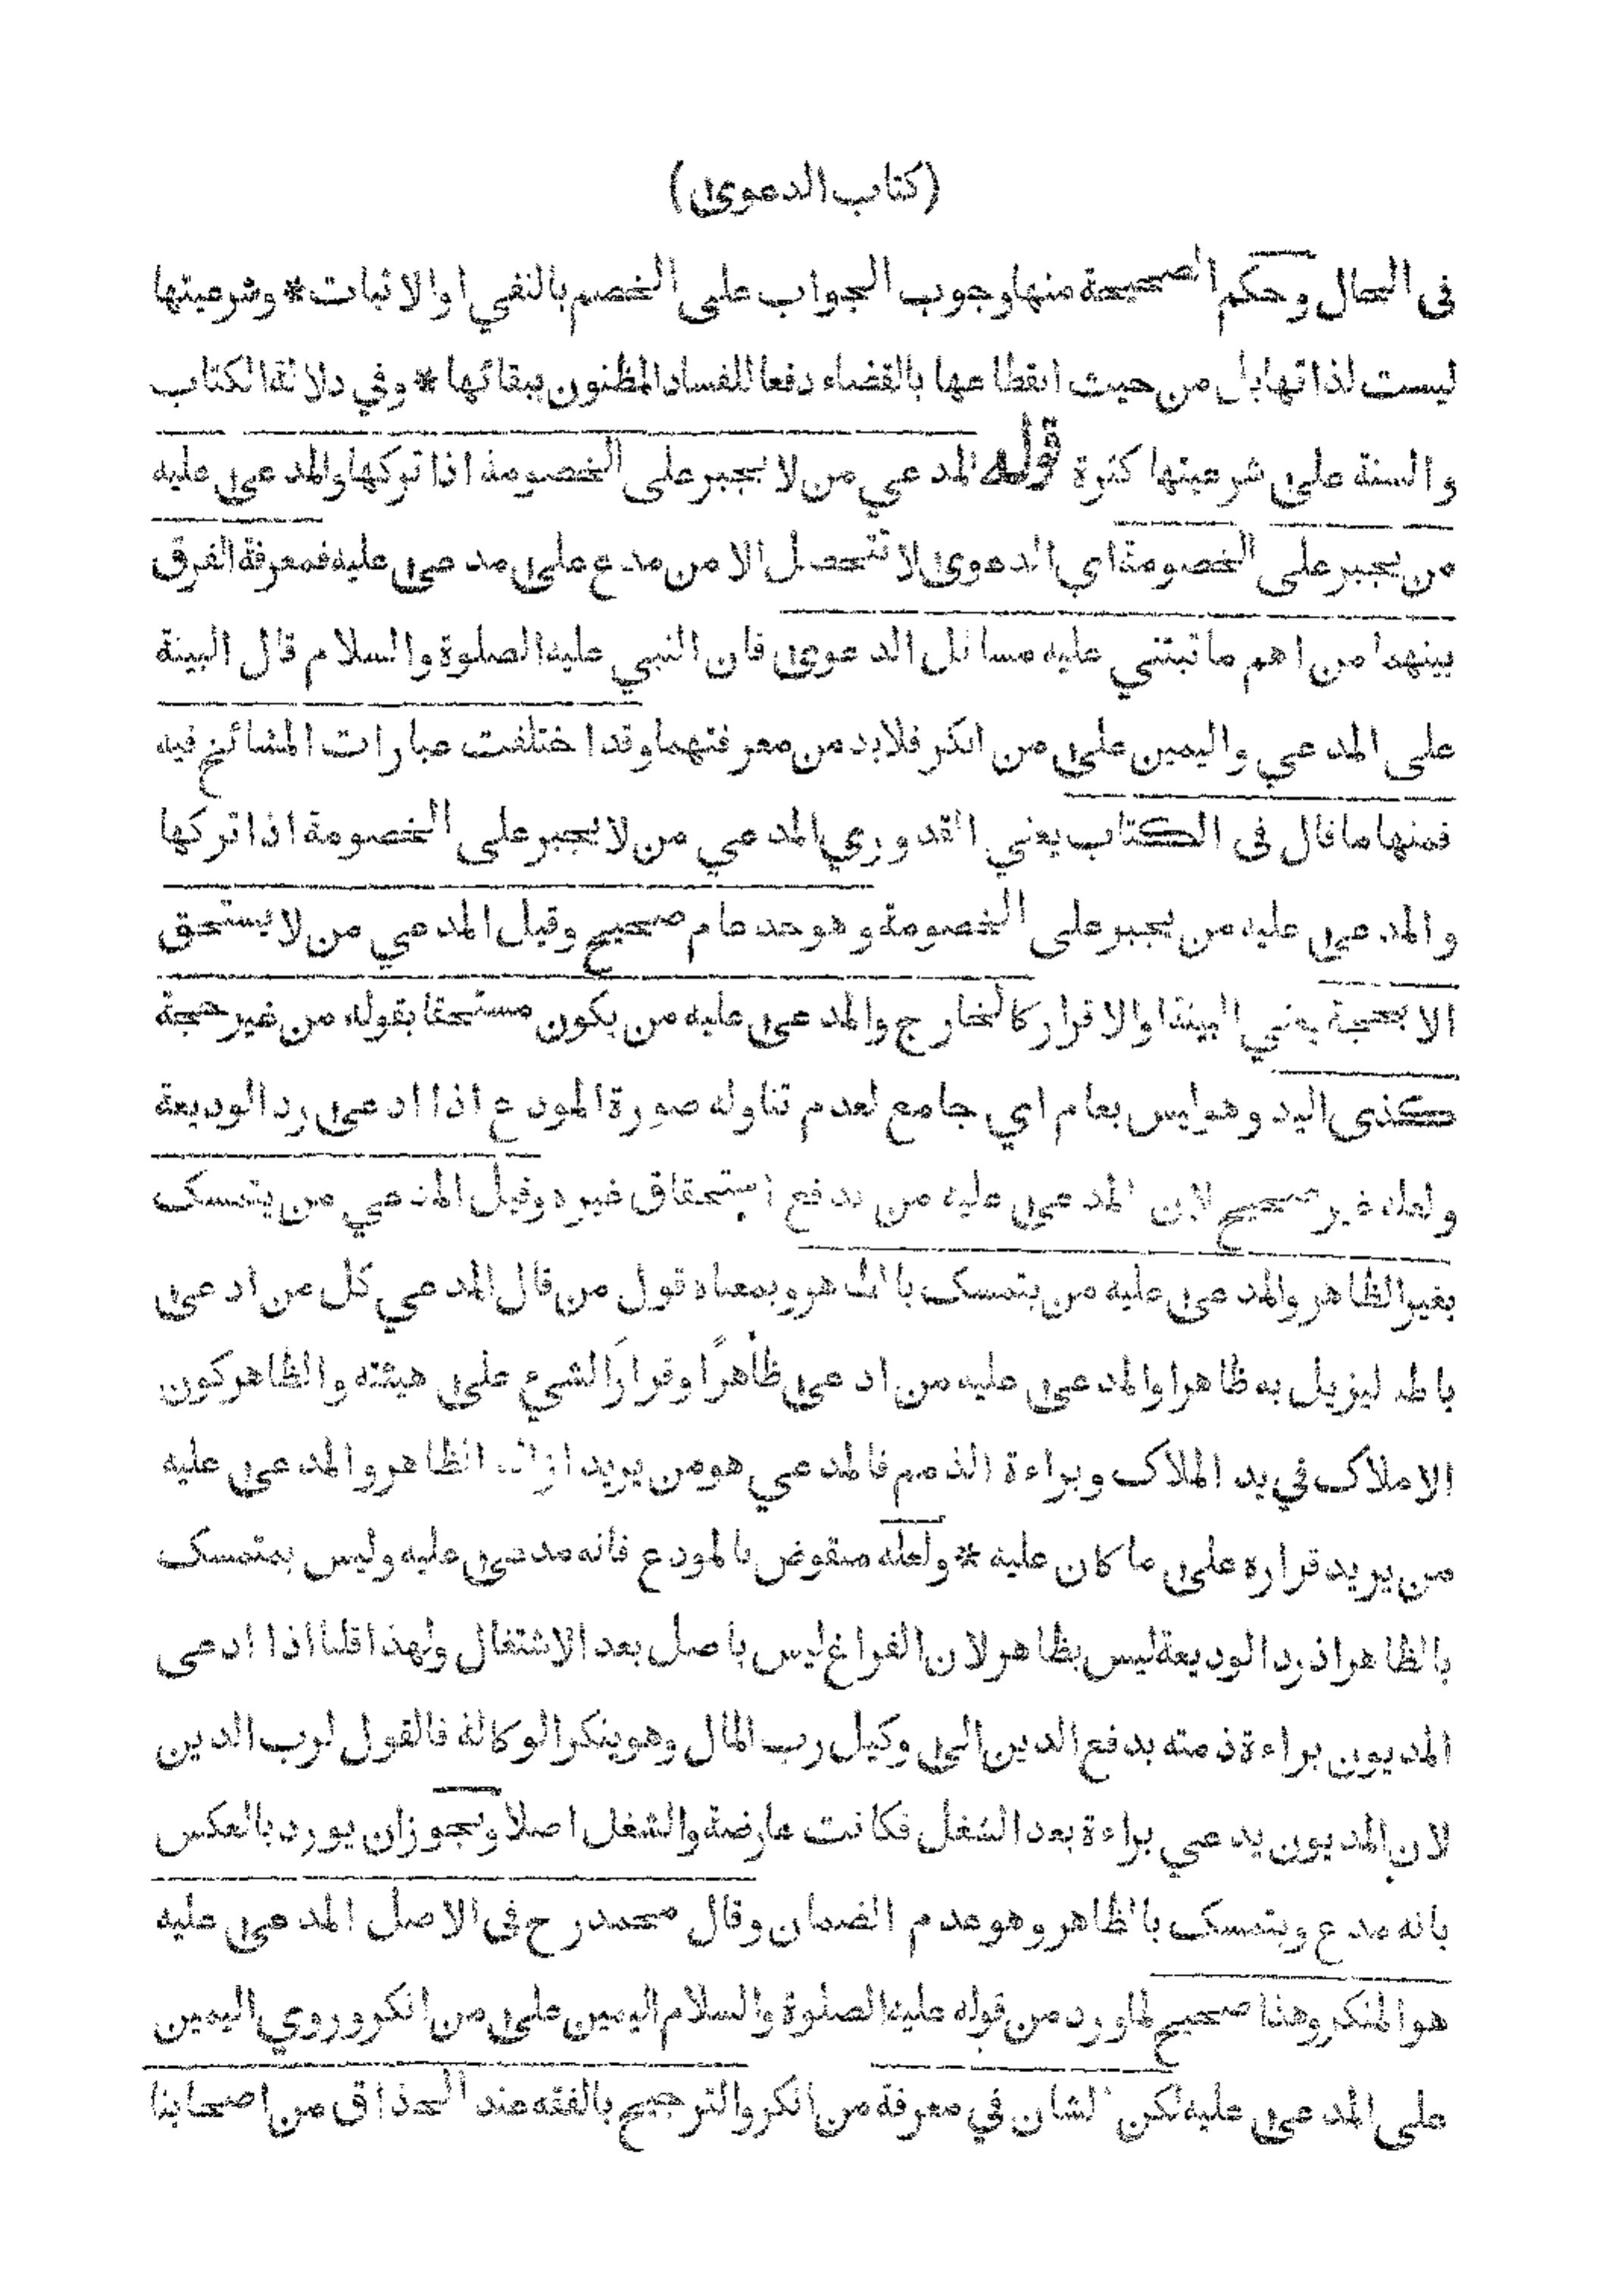 (كتاب الدعوى)
فى الحال وحكم الصحيحة منها وجوب الجواب على الخصم بالنفي او الاثبات * وشرعيتها
ليست لذاتها بل من حيث انقطاعها بالقضاء دفعا للفساد المظنون ببقائها * وفي دلالة الكتاب
والسنة على شرعيتها كثرة قوله المدعي من لا يجبر على الخصومة اذا تركها والمدعى عليه
من يجبر على الخصومة اي الدعوى لا تتحصل الا من مدع على مدعى عليه فمعرفة الفرق
بينهما من اهم ما تبتني عليه مسائل الدعوى فان النبي عليه الصلوة والسلام قال البينة
على المدعي واليمين على من انكر فلا بد من معرفتهما وقد اختلفت عبارات المشائخ فيه
فمنها ما قال فى الكتاب يعني القدوري المدعي من لا يجبر على الخصومة اذا تركها
والمدعى عليه من يجبر على الخصومة وهو حد عام صحيح وقيل المدعي من لا يستحق
الا بحجة يعني البينة او الاقرار كالخارج والمدعى عليه من يكون مستحقا بقوله من غير حجة
كذى اليد وهو ليس بعام اي جامع لعدم تناوله صورة المودع اذا ادعى رد الوديعة
ولعله غير صحيح لان المدعى عليه من يدفع استحقاق غيره وقيل المدعي من يتمسك
بغير الظاهر والمدعى عليه من يتمسك بالظاهر وبمعناه قول من قال المدعي كل من ادعى
باطنا ليزيل به ظاهرا والمدعى عليه من ادعى ظاهرًا وقرارَ الشيء على هيئته والظاهر كون
الاملاك في يد الملاك وبراءة الذمم فالمدعي هو من يريد ازالة الظاهر والمدعى عليه
من يريد قراره على ما كان عليه * ولعله منقوض بالمودع فانه مدعى عليه وليس بمتمسك
بالظاهر اذ رد الوديعة ليس بظاهر لان الفراغ ليس باصل بعد الاشتغال ولهذا قلنا اذا ادعى
المديون براءة ذمته بدفع الدين الى وكيل رب المال وهو ينكر الوكالة فالقول لرب الدين
لان المديون يدعي براءة بعد الشغل فكانت عارضة والشغل اصلا ويجوز ان يورد بالعكس
بانه مدع ويتمسك بالظاهر وهو عدم الضمان وقال محمد رح فى الاصل المدعى عليه
هو المنكر وهذا صحيح لما ورد من قوله عليه الصلوة والسلام اليمين على من انكر وروي اليمين
على المدعى عليه لكن الشان في معرفة من انكر والترجيح بالفقه عند الحذاق من اصحابنا